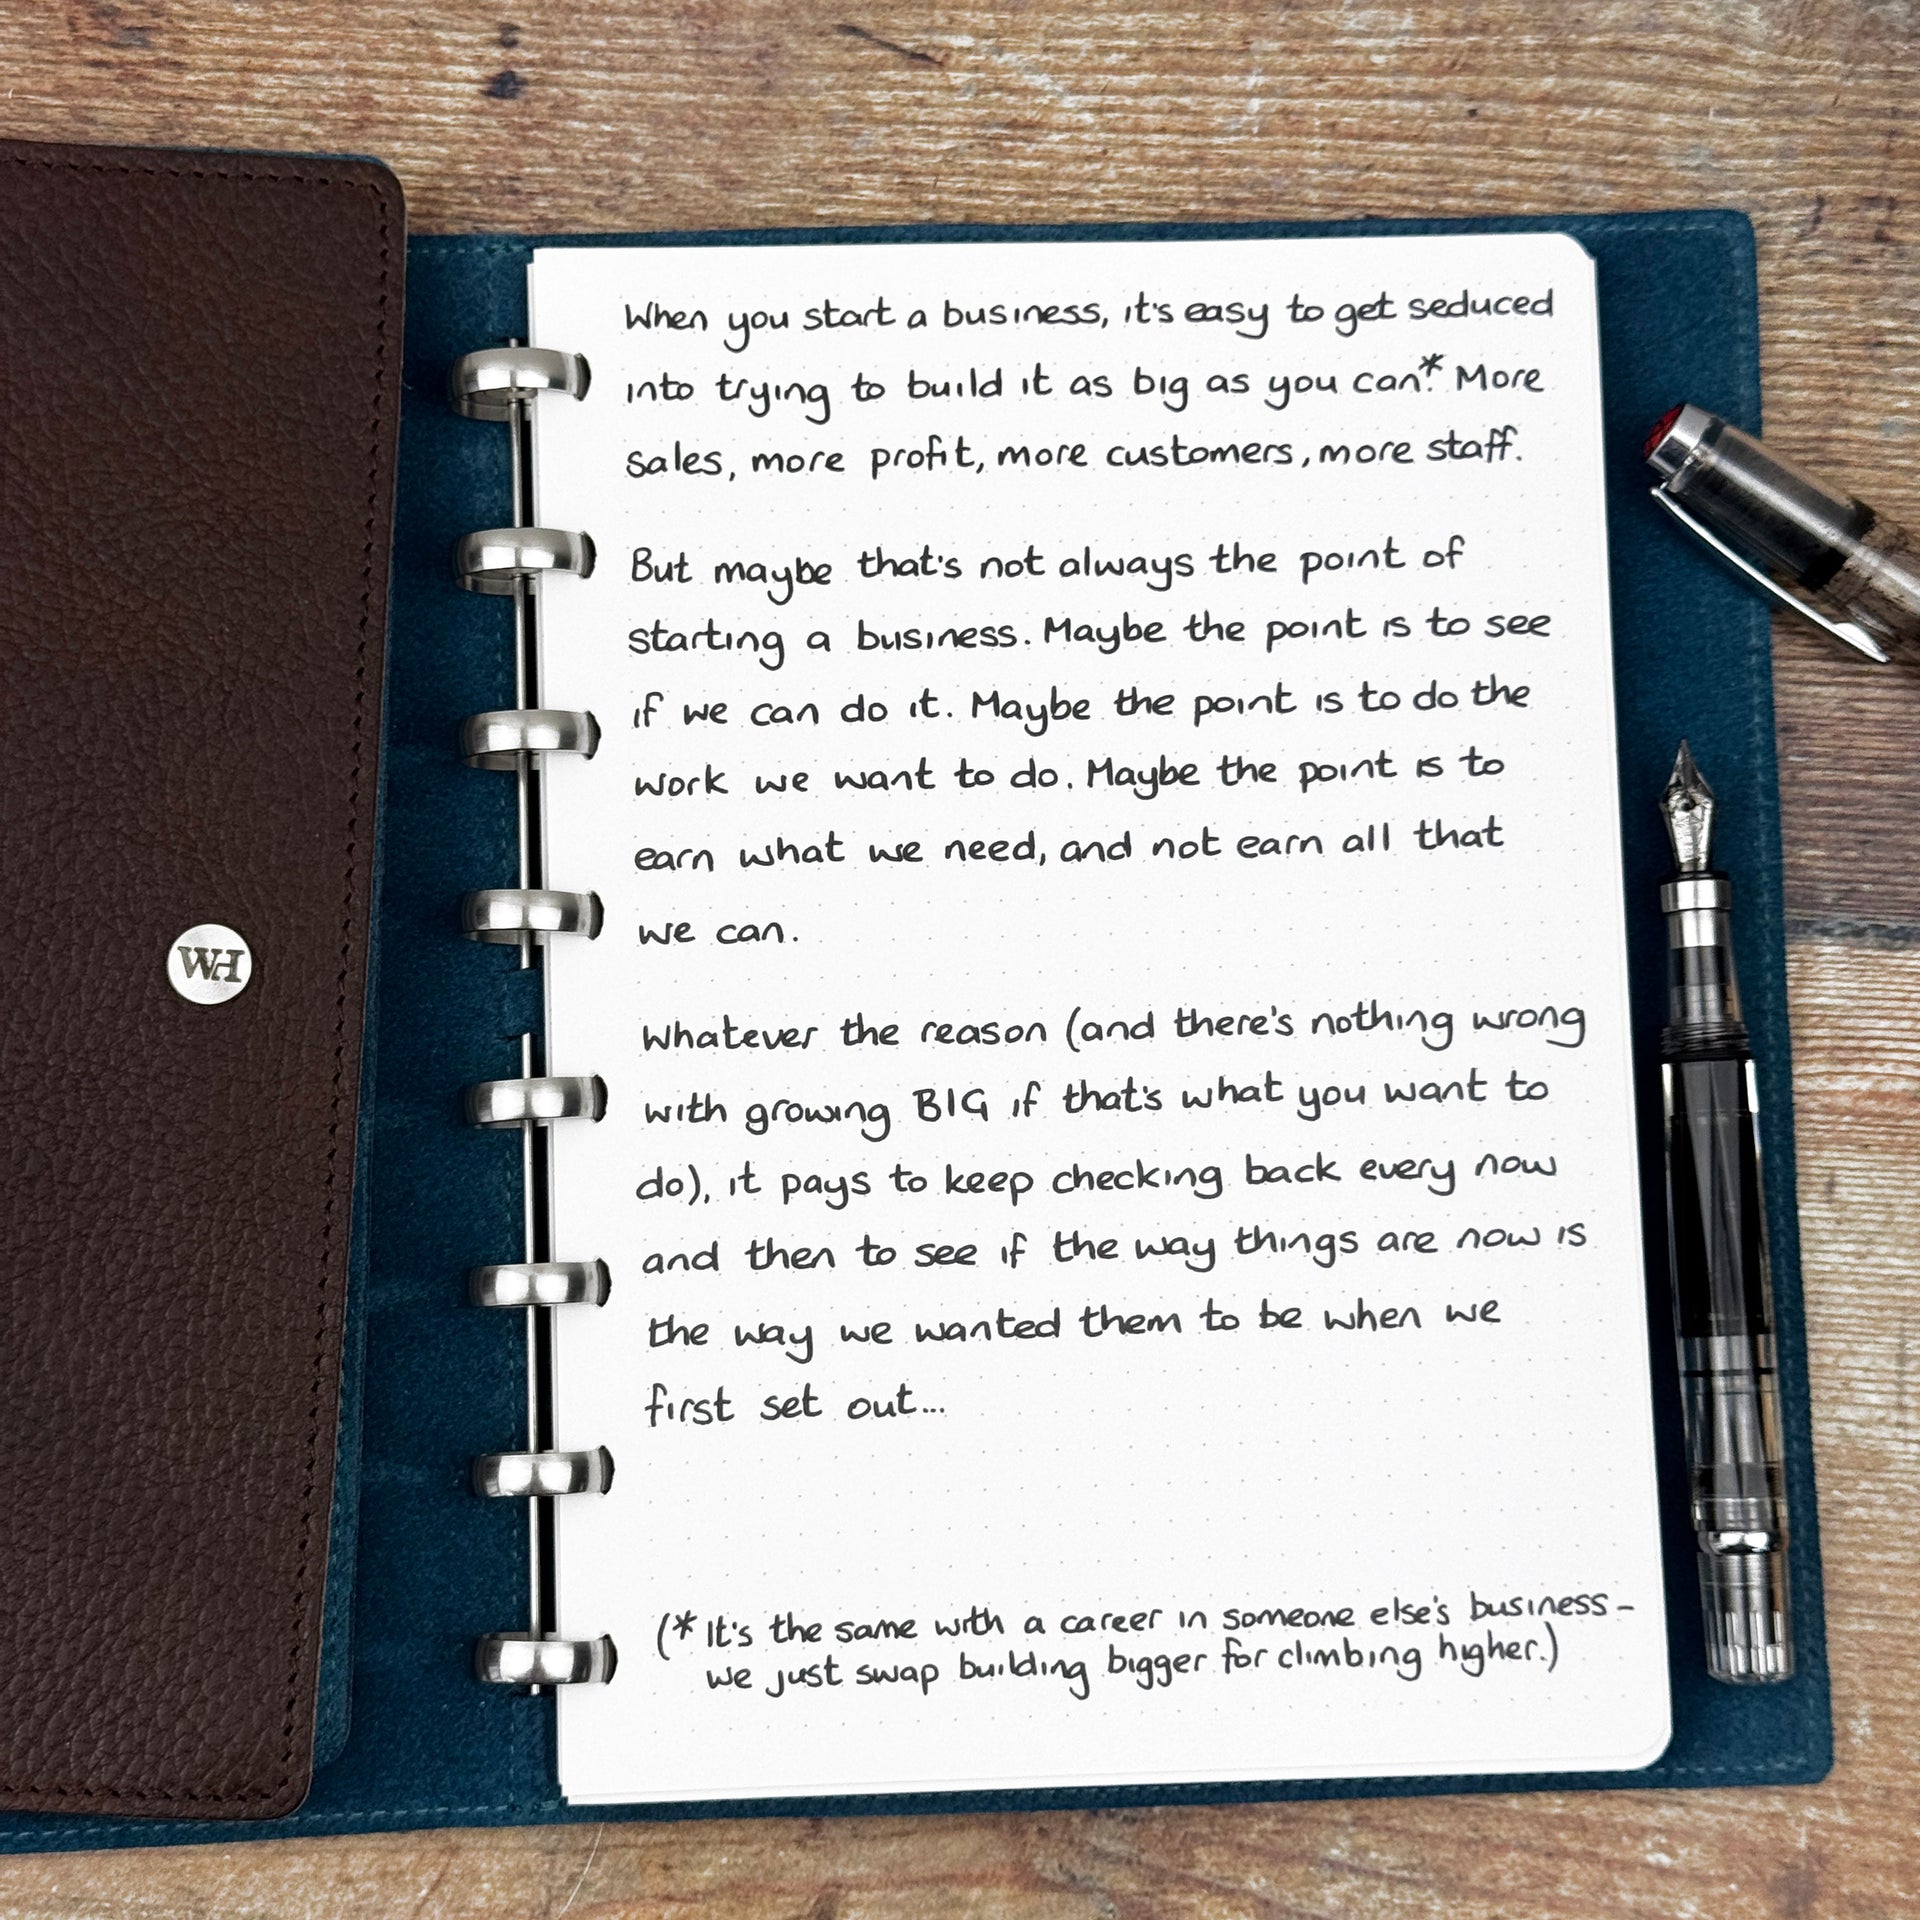 When you start a business, it's easy to get seduced
into trying to build it as big as you can.* More
sales, more profit, more customers, more staff.
But maybe that's not always the point of
starting a business. Maybe the point is to see
if we can do it. Maybe the point is to do the
work we want to do. Maybe the point is to
earn what we need, and not earn all that
we can.
Whatever the reason (and there's nothing wrong
with growing BIG if that's what you want to
do), it pays to keep checking back every now
and then to see if the way things are now is
the way we wanted them to be when we
first set out...
(* It's the same with a career in someone else's business –
we just swap building bigger for climbing higher.)
WH